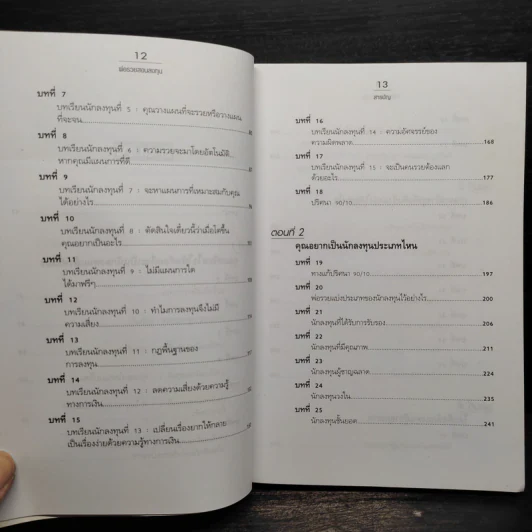 12
พ่อรวยสอนลงทุน
บทที่ 7
บทเรียนนักลงทุนที่ 5 : คุณวางแผนที่จะรวยหรือวางแผน
ที่จะจน
บทที่ 8
บทเรียนนักลงทุนที่ 6 : ความรวยจะมาโดยอัตโนมัติ
หากคุณมีแผนการที่ดี
บทที่ 9
บทเรียนนักลงทุนที่ 7 : จะหาแผนการที่เหมาะสมกับคุณ
ได้อย่างไร
บทที่ 10
บทเรียนนักลงทุนที่ 8 : ตัดสินใจเดี๋ยวนี้ว่าเมื่อโตขึ้น
คุณอยากเป็นอะไร
บทที่ 11
บทเรียนนักลงทุนที่ 9 : ไม่มีแผนการใด
ได้มาฟรีๆ
บทที่ 12
บทเรียนนักลงทุนที่ 10 : ทำไมการลงทุนจึงไม่มี
ความเสี่ยง
บทที่ 13
บทเรียนนักลงทุนที่ 11 : กฎพื้นฐานของ
การลงทุน
บทที่ 14
บทเรียนนักลงทุนที่ 12 : ลดความเสี่ยงด้วยความรู้
ทางการเงิน
บทที่ 15
บทเรียนนักลงทุนที่ 13 : เปลี่ยนเรื่องยากให้กลาย
เป็นเรื่องง่ายด้วยความรู้ทางการเงิน
13
สารบัญ
บทที่ 16
บทเรียนนักลงทุนที่ 14 : ความอัศจรรย์ของ
ความผิดพลาด 168
บทที่ 17
บทเรียนนักลงทุนที่ 15 : จะเป็นคนรวยต้องแลก
ด้วยอะไร 177
บทที่ 18
ปริศนา 90/10 186
ตอนที่ 2
คุณอยากเป็นนักลงทุนประเภทไหน
บทที่ 19
ทางแก้ปริศนา 90/10 197
บทที่ 20
พ่อรวยแบ่งประเภทของนักลงทุนไว้อย่างไร 200
บทที่ 21
นักลงทุนที่ได้รับการรับรอง 204
บทที่ 22
นักลงทุนที่มีคุณภาพ 211
บทที่ 23
นักลงทุนผู้ชาญฉลาด 224
บทที่ 24
นักลงทุนวงใน 235
บทที่ 25
นักลงทุนชั้นยอด 241